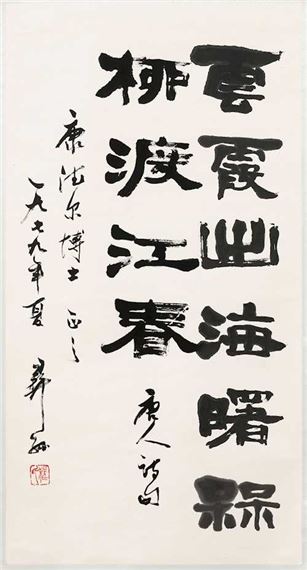 雲霞出海曙槑
柳渡江春
唐人詩句
康德尔博士正之
一九七九年夏